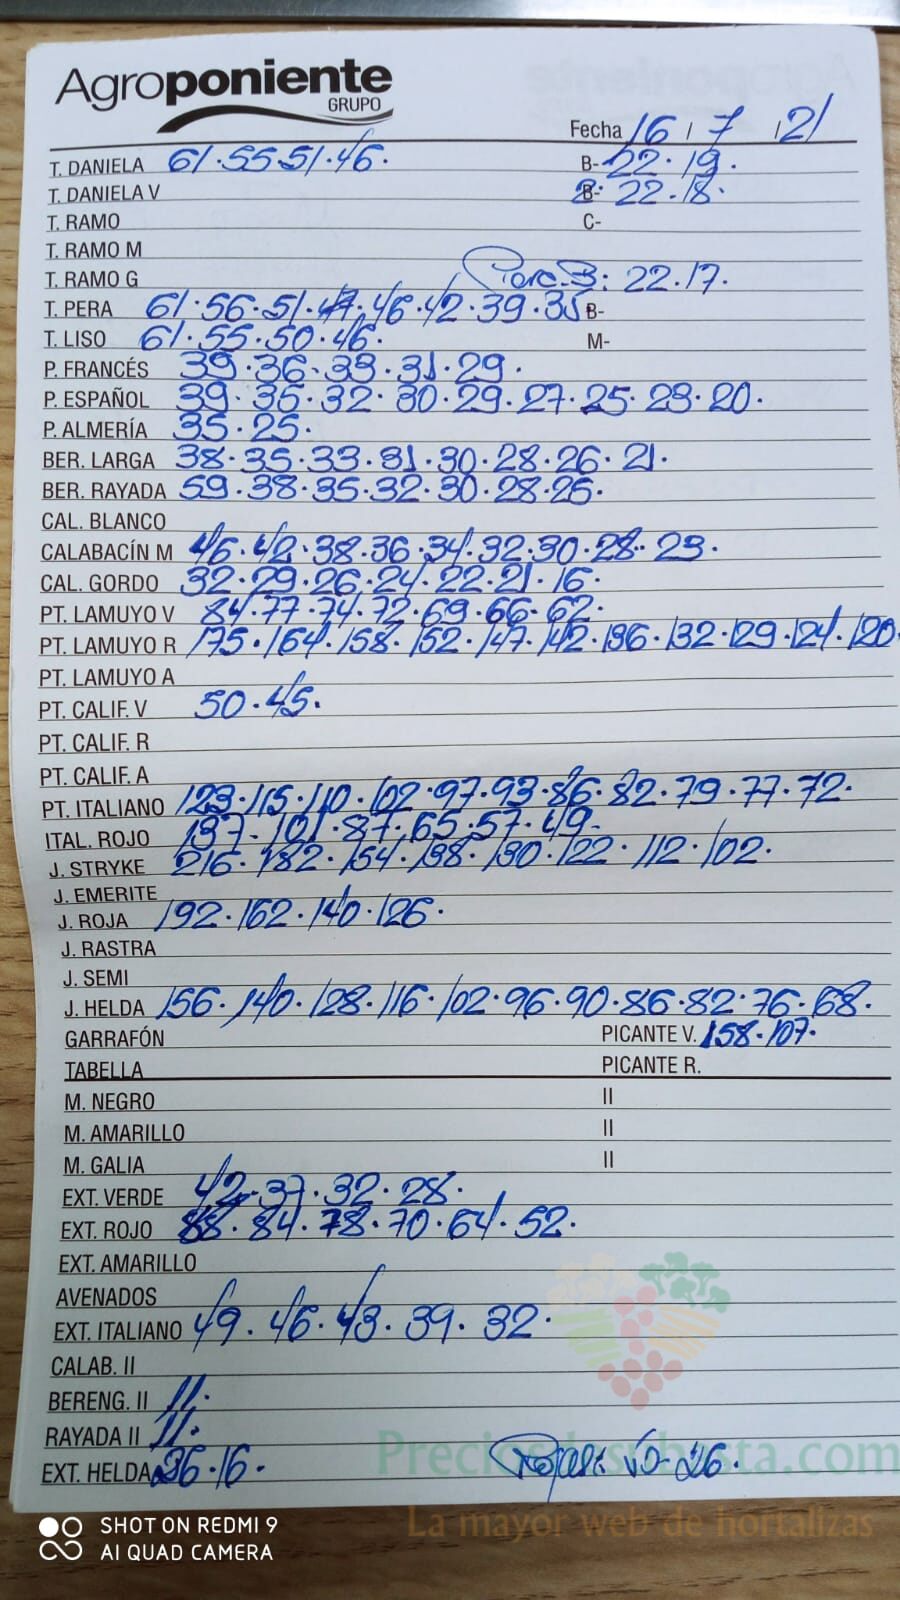 Agroponiente
GRUPO
Fecha 16 / 7 / 21
T. DANIELA 61.55.51.46. B- 22.19.
T. DANIELA V B- 22.18.
T. RAMO C-
T. RAMO M
T. RAMO G 3: 22.17.
T. PERA 61.56.51.47.46.42.39.35 B-
T. LISO 61.55.50.46. M-
P. FRANCÉS 39.36.33.31.29.
P. ESPAÑOL 39.35.32.30.29.27.25.23.20.
P. ALMERÍA 35.25.
BER. LARGA 38.35.33.31.30.28.26.21.
BER. RAYADA 59.38.35.32.30.28.25.
CAL. BLANCO
CALABACÍN M 46.42.38.36.34.32.30.28.23.
CAL. GORDO 32.29.26.24.22.21.16.
PT. LAMUYO V 84.77.74.72.69.66.62.
PT. LAMUYO R 175.164.158.152.147.142.136.132.129.124.120.
PT. LAMUYO A
PT. CALIF. V 50.45.
PT. CALIF. R
PT. CALIF. A
PT. ITALIANO 123.115.110.102.97.93.86.82.79.77.72.
ITAL. ROJO 137.101.87.65.57.49.
J. STRYKE 216.182.154.138.130.122.112.102.
J. EMERITE
J. ROJA 192.162.140.126.
J. RASTRA
J. SEMI
J. HELDA 156.140.128.116.102.96.90.86.82.76.68.
GARRAFÓN PICANTE V. 158.107.
TABELLA PICANTE R.
M. NEGRO II
M. AMARILLO II
M. GALIA II
EXT. VERDE 42.37.32.28.
EXT. ROJO 88.84.78.70.64.52.
EXT. AMARILLO
AVENADOS
EXT. ITALIANO 49.46.43.39.32.
CALAB. II
BERENG. II 11.
RAYADA II 11.
EXT. HELDA 26.16. 26.
Preciosdesubasta.com
La mayor web de hortalizas
SHOT ON REDMI 9
AI QUAD CAMERA